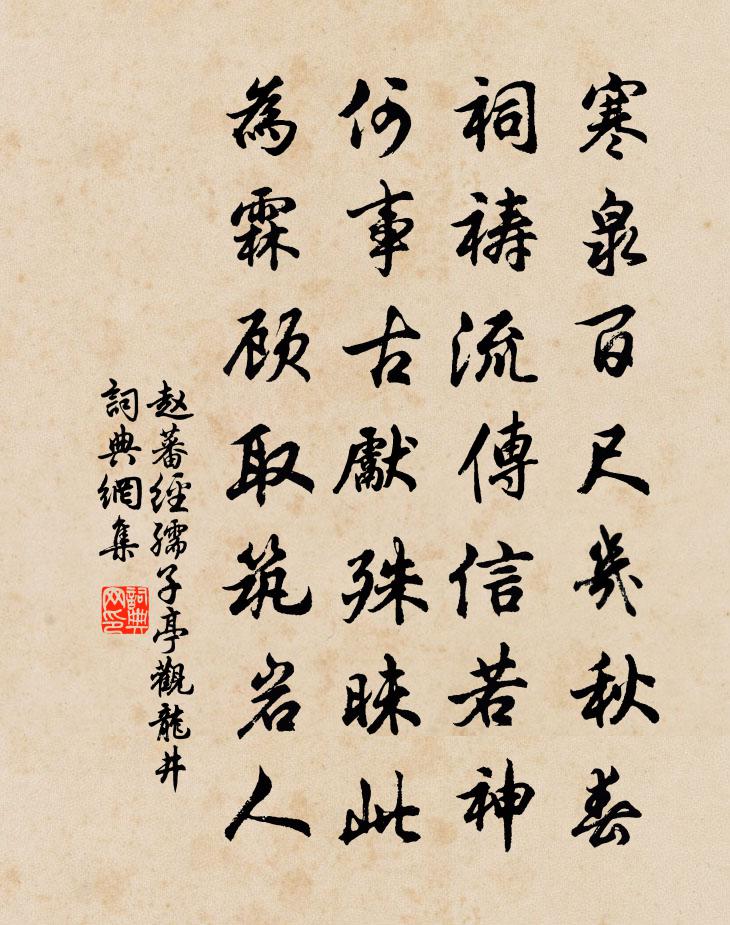 寒泉百尺幾秋春
祠祷流傳信若神
何事古獻殊昧此
為霖顾取筑岩人
赵蕃經孺子亭觀龍井
詞典網集
詞典网印